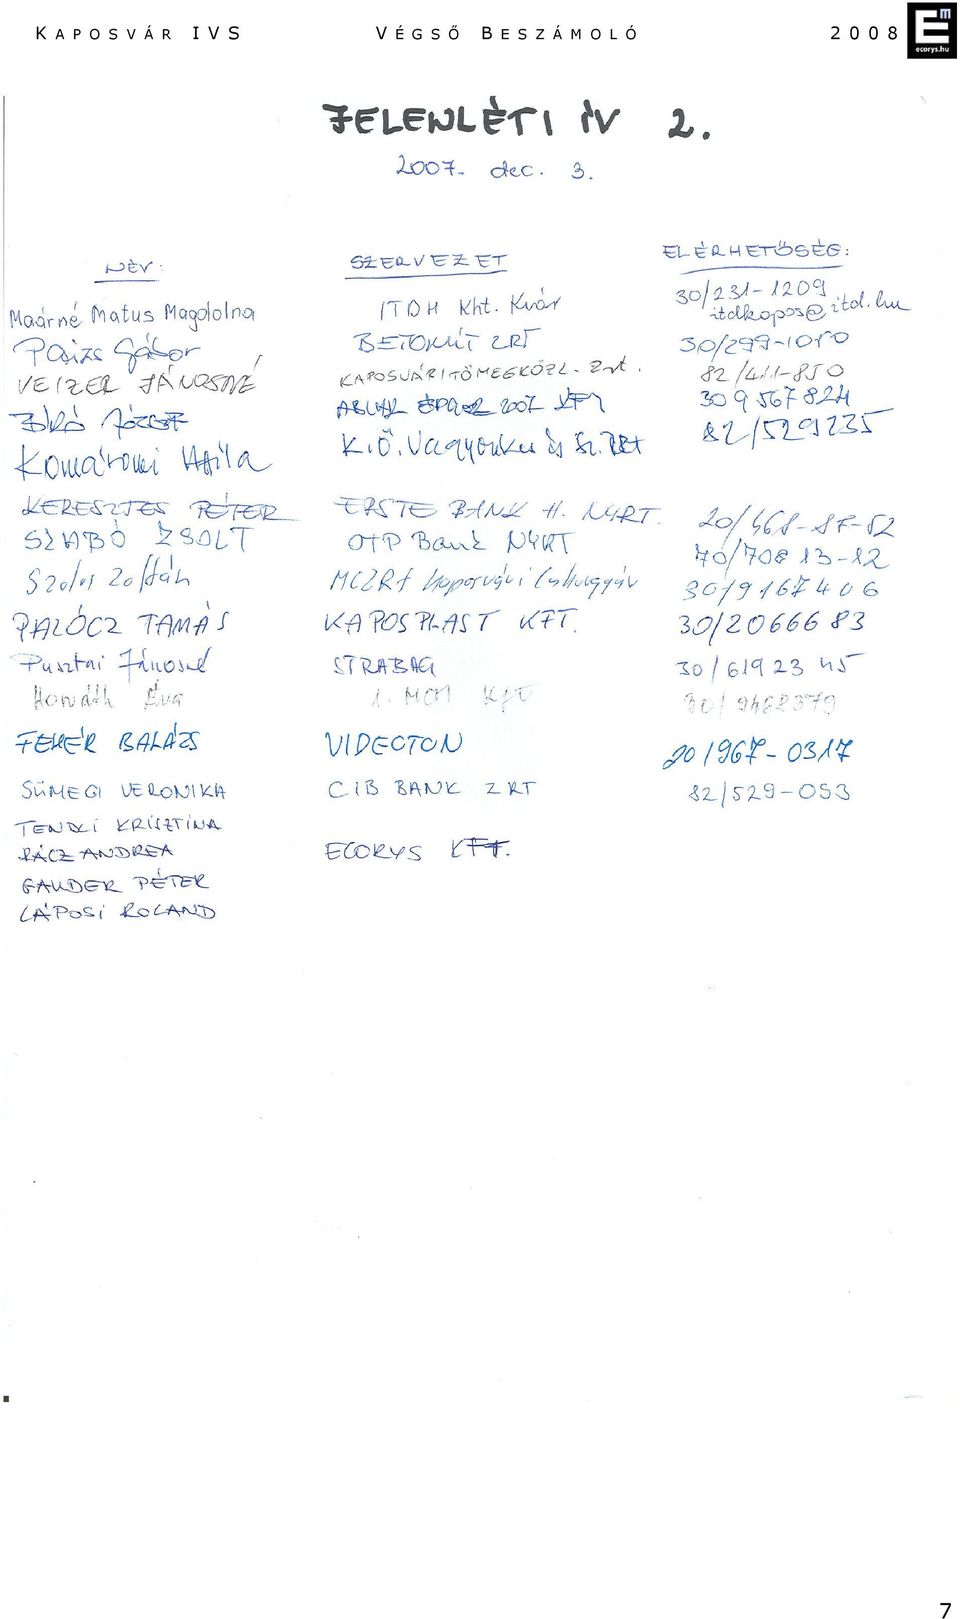 KAPOSVÁR IVS VÉGSŐ BESZÁMOLÓ 2008
Em
ecorys.hu
JELENLÉTI ÍV 2.
2007. dec. 3.
NÉV: SZERVEZET ELÉRHETŐSÉG:
Maárné Matus Magdolna ITDH Kht. Kvár 30/231-1209
itdkapos@itd.hu
Paizs Gábor BETONÚT ZRT 30/299-1050
VEIZER JÁNOSNÉ KAPOSVÁRI TÖMEGKÖZL. Zrt. 82/411-850
Bíró József 2007 30 9567824
Komáromi Attila K.Ö. Vagyonkez és Sz. ZRt 82/529235
KERESZTES PÉTER ERSTE BANK H. NYRT. 20/468-87-52
SZABÓ ZSOLT OTP Bank NYRT 70/708 13-12
Zoltán MCZRt Kaposvári Cukorgyár 30/9167406
PALÓCZ TAMÁS KAPOSPLAST KFT. 30/2066683
Pusztai Jánosné STRABAG 30/619 23 45
Horváth Éva 1. MCM Kft 30/9468379
FEHÉR BALÁZS VIDEOTON 20/967-0317
SÜMEGI VERONIKA CIB BANK ZRT 82/529-053
TENDLI KRISZTINA
RÁCZ ANDREA ECORYS KFT.
GAUDER PÉTER
LÁPOSI ROLAND
7